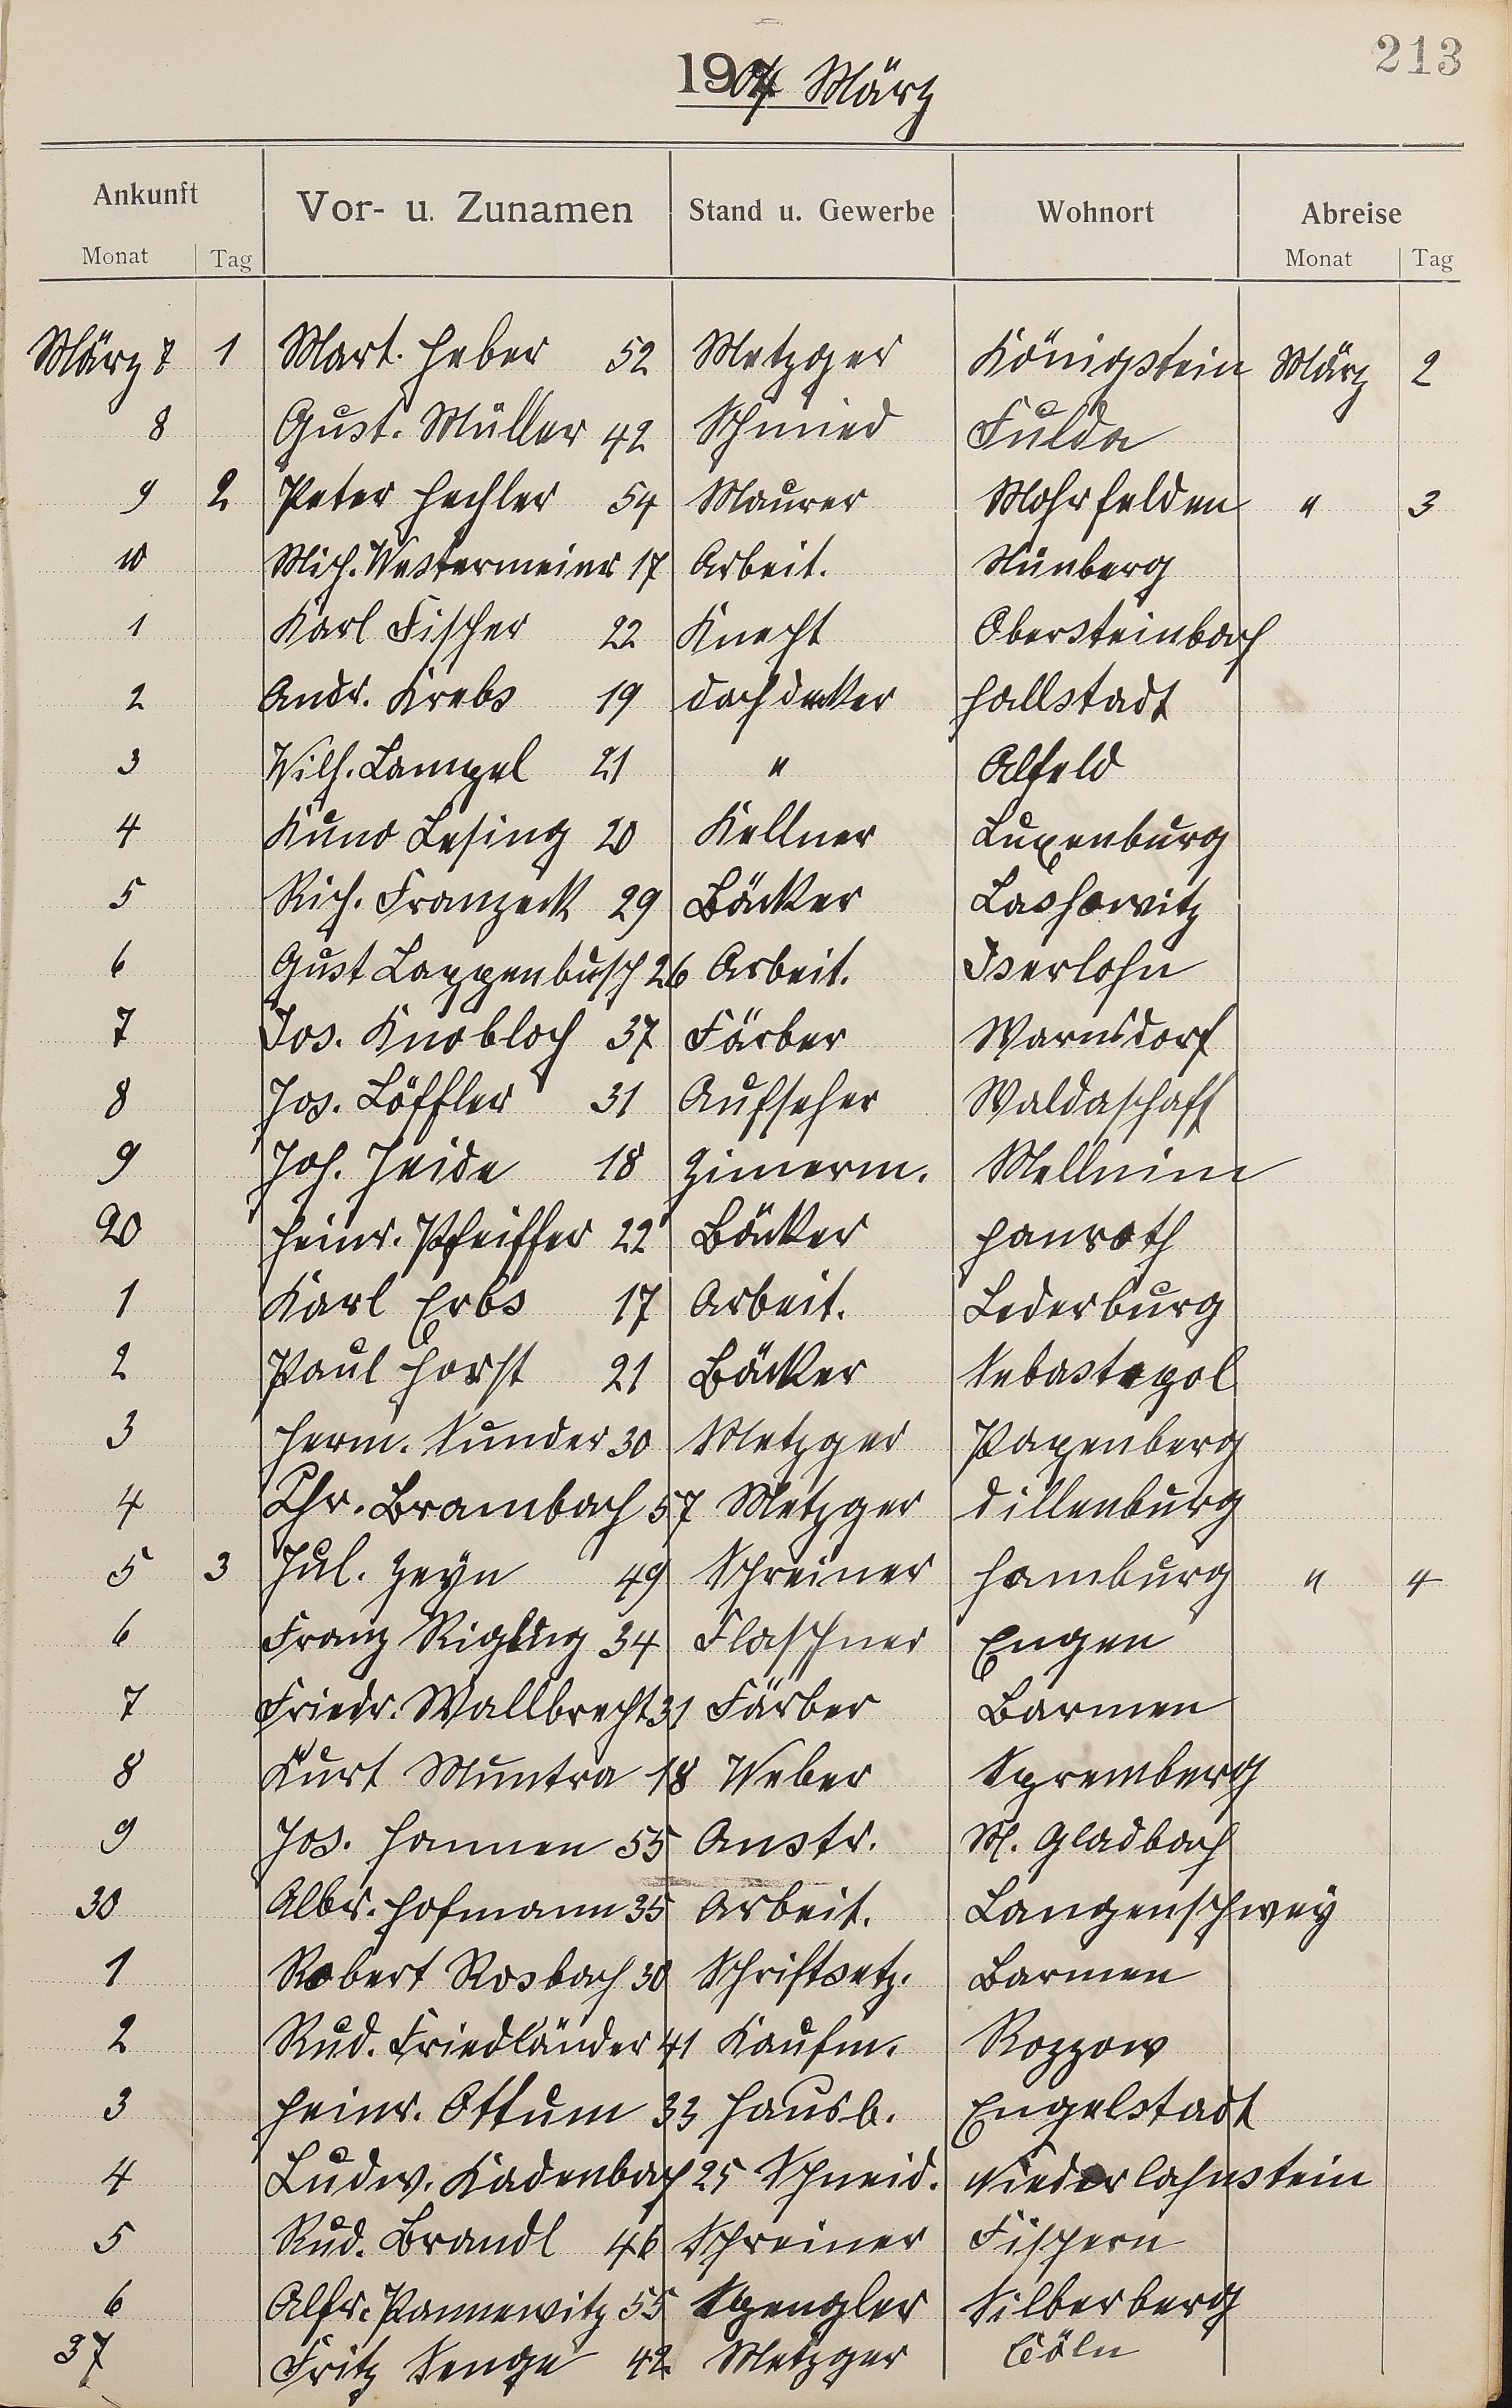 213
1904 März
Ankunft Vor- u. Zunamen Stand u. Gewerbe Wohnort Abreise
Monat Tag Monat Tag
März 7 1 Mart. Heber 52 Metzger Königstein März 2
8 Gust. Müller 42 Schmied Fulda
9 2 Peter Hechler 54 Maurer Mohrfelden " 3
10 Mich. Westermeier 17 Arbeit. Nünberg
1 Karl Fischer 22 Knecht Obersteinbach
2 Andr. Krebs 19 Dachdecker Hallstadt
3 Wilh. Lampel 21 " Alfeld
4 Kuno Lesing 20 Kellner Luxenburg
5 Rich. Franzeck 29 Bäcker Lashowitz
6 Gust Lappenbusch 26 Arbeit. Iserlohn
7 Jos. Knobloch 37 Färber Warnsdorf
8 Jos. Löffler 31 Aufseher Waldaschaff
9 Joh. Heide 18 Zimerm. Mellnim
20 Heinr. Pfeiffer 22 Bäcker Hanroth
1 Karl Erbs 17 Arbeit. Lederburg
2 Paul Horst 21 Bäcker Sebastopol
3 Herm. Sunder 30 Metzger Papenberg
4 Chr. Brambach 57 Metzger Dillenburg
5 3 Jul. Zeyn 49 Schreiner Hamburg " 4
6 Franz 34 Flaschner Engen
7 Friedr. Wallbrecht 31 Färber Barmen
8 Kurt Muntra 18 Weber Spremberg
9 Jos. Hannen 55 Anstr. M. Gladbach
30 Albr. Hofmann 35 Arbeit. Langenschwey
1 Robert Rosbach 30 Schriftsetz. Barmen
2 Rud. Friedländer 41 Kaufm. Roppow
3 Heinr. Ottum 33 Hausb. Engelstadt
4 Ludw. Kadenbach 25 Schneid. Niederlahnstein
5 Rud. Brandl 46 Schreiner Fischern
6 Alfr. Pannewitz 55 Spengler Silberberg
37 Fritz Senge 42 Metzger Cöln